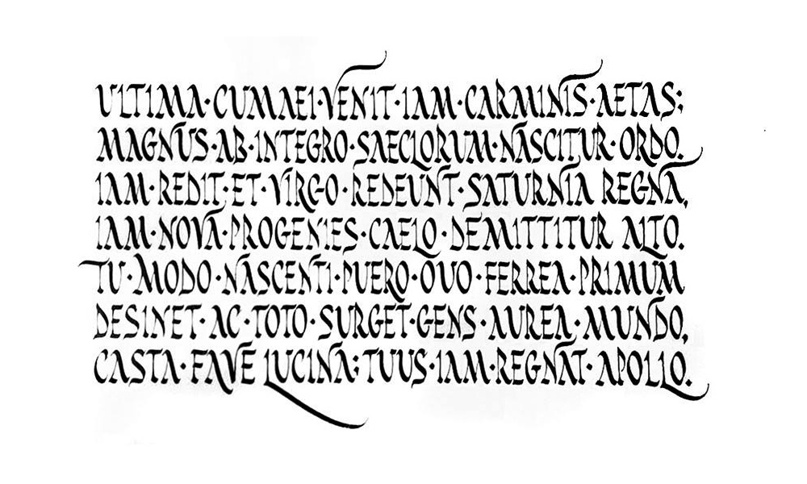 ULTIMA·CUMAEI·VENIT·IAM·CARMINIS·AETAS;
MAGNUS·AB·INTEGRO·SAECLORUM·NASCITUR·ORDO.
IAM·REDIT·ET·VIRGO·REDEUNT·SATURNIA REGNA,
IAM·NOVA·PROGENIES·CAELO·DEMITTITUR ALTO.
TU·MODO·NASCENTI·PUERO·QUO·FERREA·PRIMUM
DESINET·AC·TOTO·SURGET·GENS·AUREA·MUNDO,
CASTA·FAVE LUCINA;TUUS·IAM·REGNAT·APOLLO.